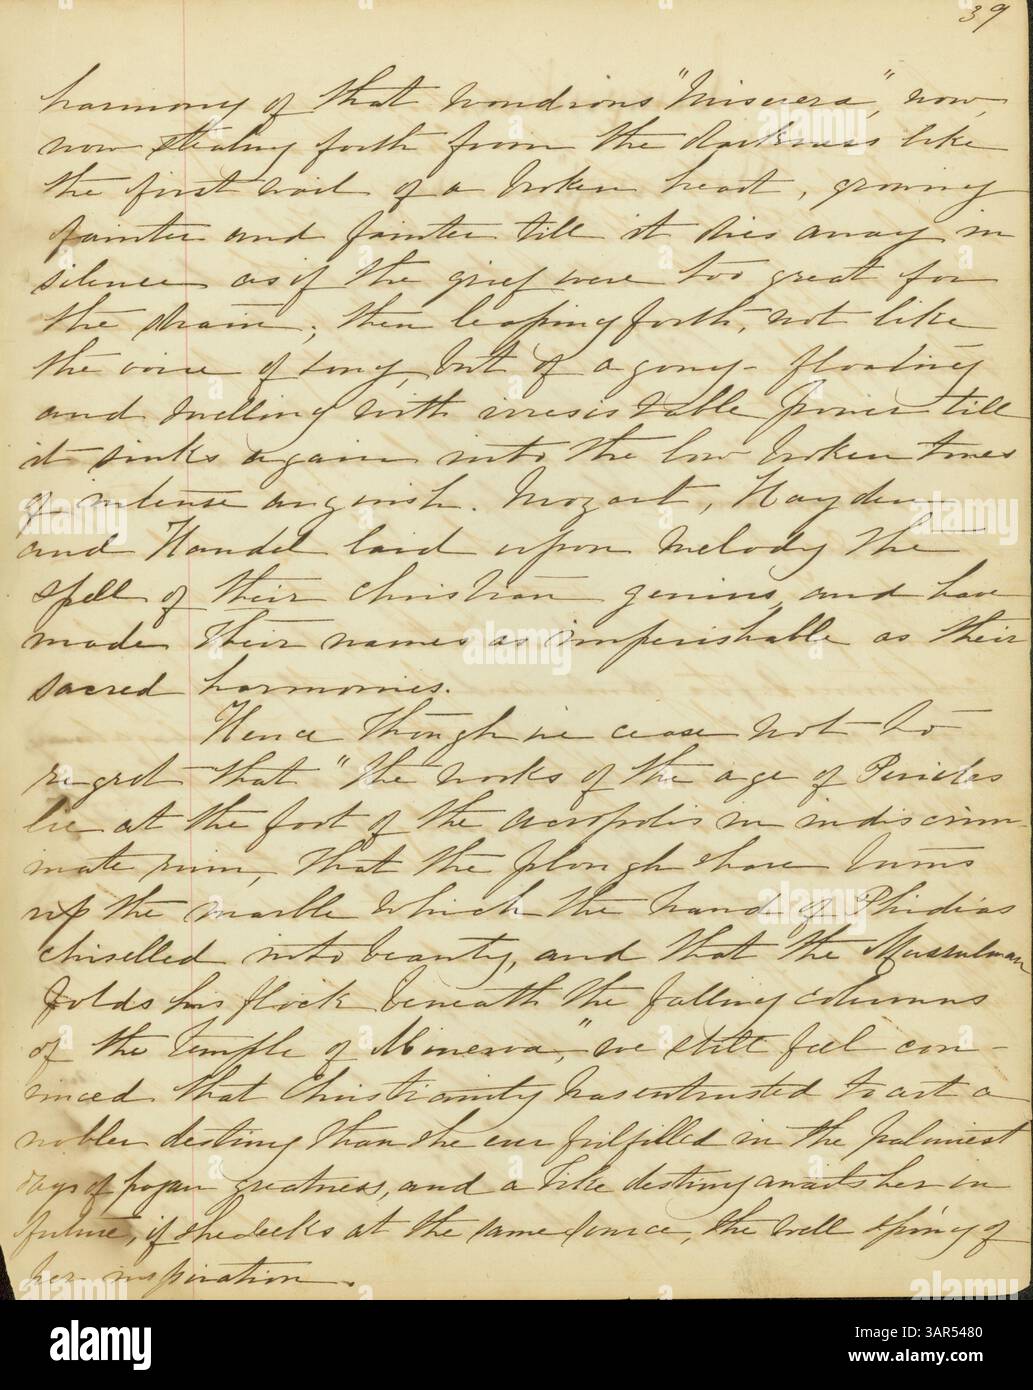 39
harmony of that wondrous "Miserera," now,
now stealing forth from the darkness like
the first wail of a broken heart, growing
fainter and fainter till it dies away in
silence as if the grief were too great for
the strain; then leaping forth, not like
the voice of song, but of agony - floating
and swelling with irresistable power till
it sinks again into the low broken tones
of intense anguish. Mozart, Hayden
and Handel laid upon melody the
spell of their Christian genius, and have
made their names as imperishable as their
sacred harmonies.
Hence though we cease not to
regret that "the works of the age of Pericles
lie at the foot of the acropolis in indiscrim-
inate ruin, that the plough share turns
up the marble which the hand of Phidias
chiselled into beauty, and that the Mussulman
folds his flock beneath the falling columns
of the Temple of Minerva," we still feel con-
vinced that Christianity has entrusted to art a
nobler destiny than she ever fulfilled in the palmiest
days of pagan greatness, and a like destiny awaits her in
future, if she seeks at the same source, the well spring of
her inspiration.
alamy
Image ID: 3AR5480
www.alamy.com